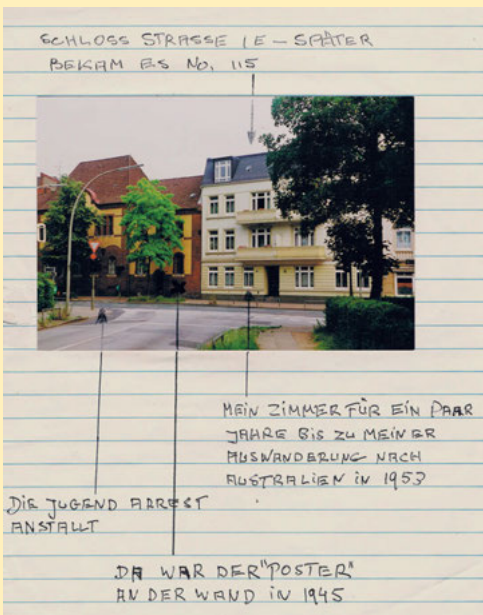 SCHLOSS STRASSE 1E – SPÄTER
BEKAM ES No. 115
MEIN ZIMMER FÜR EIN PAAR
JAHRE BIS ZU MEINER
AUSWANDERUNG NACH
AUSTRALIEN in 1953
DIE JUGEND ARREST
ANSTALLT
DA WAR DER "POSTER"
AN DER WAND in 1945